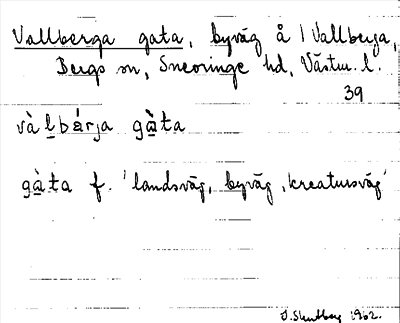 Vallberga gata, byväg å / Vallberga,
Bergs sn, Snevringe hd, Västm. l.
39
và l̲bárja gà̲ta
gà̲ta f. 'landsväg, byväg, kreatursväg'
1962.